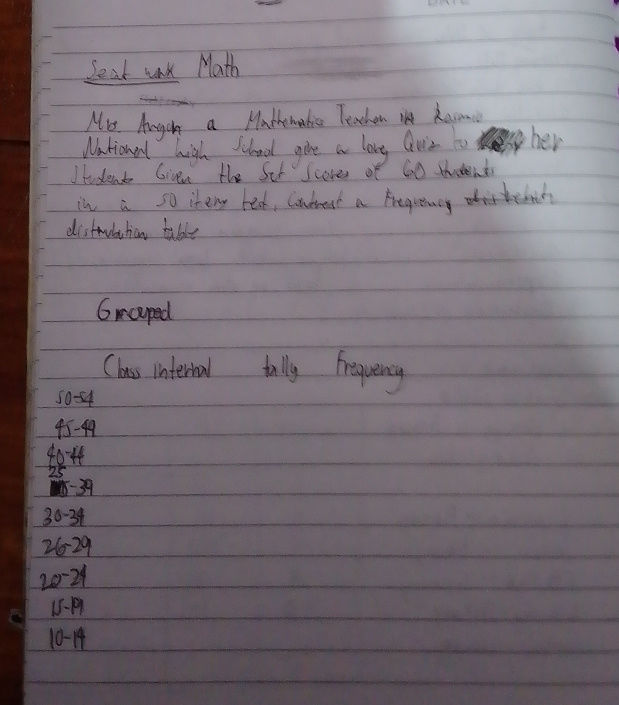 Seat work Math
Mrs. Angon a Mathematics Teacher in
National high School give a long Quiz to her
Students Given the Set Scores of 60 Students
in a 50 items test, a Frequency
distribution table
Grouped
Class interval tally Frequency
50-54
45-49
40-44
25
-39
30-34
26-29
20-24
15-19
10-14